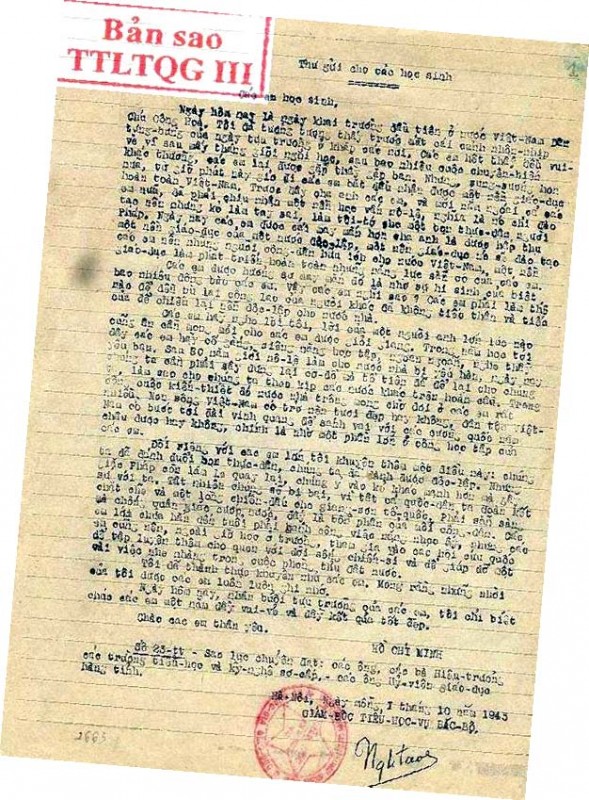 Bản sao
TTLTQG III
Thư gửi cho các học sinh
Các em học sinh,
Ngày hôm nay là ngày khai trường đầu tiên ở nước Việt-Nam Dân
Chủ Cộng Hoà. Tôi đã tưởng tượng thấy trước mắt cái cảnh nhộn-nhịp
tưng-bừng của ngày tựu trường ở khắp các nơi. Các em hết thảy đều vui-
vẻ vì sau mấy tháng giời nghỉ học, sau bao nhiêu cuộc chuyển-biến
khác thường, các em lại được gặp thầy gặp bạn. Nhưng sung-sướng hơn
nữa, từ giờ phút này giở đi các em bắt đầu nhận được một nền giáo-dục
hoàn toàn Việt-Nam. Trước đây cha anh các em, và mới năm ngoái cả các
em nữa, đã phải chịu nhận một nền học vấn nô-lệ, nghĩa là nó chỉ đào
tạo nên những kẻ làm tay sai, làm tôi-tớ cho một bọn thực-dân người
Pháp. Ngày nay các em được cái may mắn hơn cha anh là được hấp thụ
một nền giáo-dục của một nước độc-lập, một nền giáo-dục nó sẽ đào tạo
các em nên những người công-dân hữu ích cho nước Việt-Nam, một nền
giáo-dục làm phát triển hoàn toàn những năng lực sẵn có của các em.
Các em được hưởng sự may mắn đó là nhờ sự hi sinh của biết
bao nhiêu đồng bào các em. Vậy các em nghĩ sao? Các em phải làm thế
nào để đền bù lại công lao của người khác đã không tiếc thân và tiếc
của để chiếm lại nền độc-lập cho nước nhà.
Các em hãy nghe lời tôi, lời của một người anh lớn lúc nào
cũng ân cần mong mỏi cho các em được giỏi giang. Trong năm học tới
đây các em hãy cố gắng, siêng năng học tập, ngoan ngoãn, nghe thầy
yêu bạn. Sau 80 năm giời nô-lệ làm cho nước nhà bị yếu hèn, ngày nay
chúng ta cần phải xây dựng lại cơ-đồ mà tổ tiên đã để lại cho chúng
ta, làm sao cho chúng ta theo kịp các nước khác trên hoàn cầu. Trong
công cuộc kiến-thiết đó nước nhà trông mong chờ đợi ở các em rất
nhiều. Non sông Việt-Nam có trở nên tươi đẹp hay không, dân tộc Việt-
Nam có bước tới đài vinh quang để sánh vai với các cường quốc năm
châu được hay không, chính là nhờ một phần lớn ở công học tập của
các em.
Đối riêng với các em lớn tôi khuyên thêm một điều này: chúng
ta đã đánh đuổi bọn thực-dân, chúng ta đã dành được độc-lập. Nhưng
giặc Pháp còn lăm le quay lại, chúng ỷ vào kẻ khác mạnh hơn mà gây
sự với ta. Tất nhiên chúng sẽ bị bại, vì tất cả quốc-dân ta đoàn kết
chặt chẽ và một lòng chiến-đấu cho giang-sơn tổ-quốc. Phải sẵn sàng
mà chống quân giặc cướp nước, đấy là bổn phận của mỗi công-dân. Các
em lớn chưa hẳn đến tuổi phải gánh công việc nặng nhọc ấy, nhưng các
em cũng nên, ngoài giờ học ở trường, tham gia vào các hội cứu quốc
để tập luyện thêm cho quen với đời sống chiến-sĩ và để giúp đỡ một
vài việc nhẹ nhàng trong cuộc phòng thủ đất nước.
Tôi đã thành thực khuyên nhủ các em. Mong rằng những nhời
của tôi được các em luôn luôn ghi nhớ.
Ngày hôm nay, nhân buổi tựu trường của các em, tôi chỉ biết
chúc các em một năm đầy vui-vẻ và đầy kết quả tốt đẹp.
Chào các em thân yêu.
HỒ CHÍ MINH
Số 23-tt - Sao lục chuyển đạt: các ông, các bà Hiệu-trưởng
các trường tiểu-học và kỹ-nghệ sơ-cấp, - các ông Uỷ-viên giáo-dục
hàng tỉnh.
Hà-Nội, Ngày mồng, 1 tháng 10 năm 1945
GIÁM-ĐỐC TIỂU-HỌC-VỤ BẮC-BỘ.